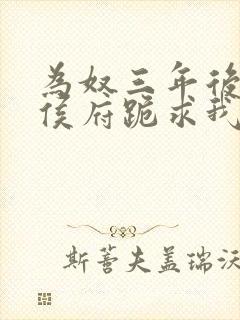 為奴三年後
侯府跪求我
斯蓍夫盖瑞沃